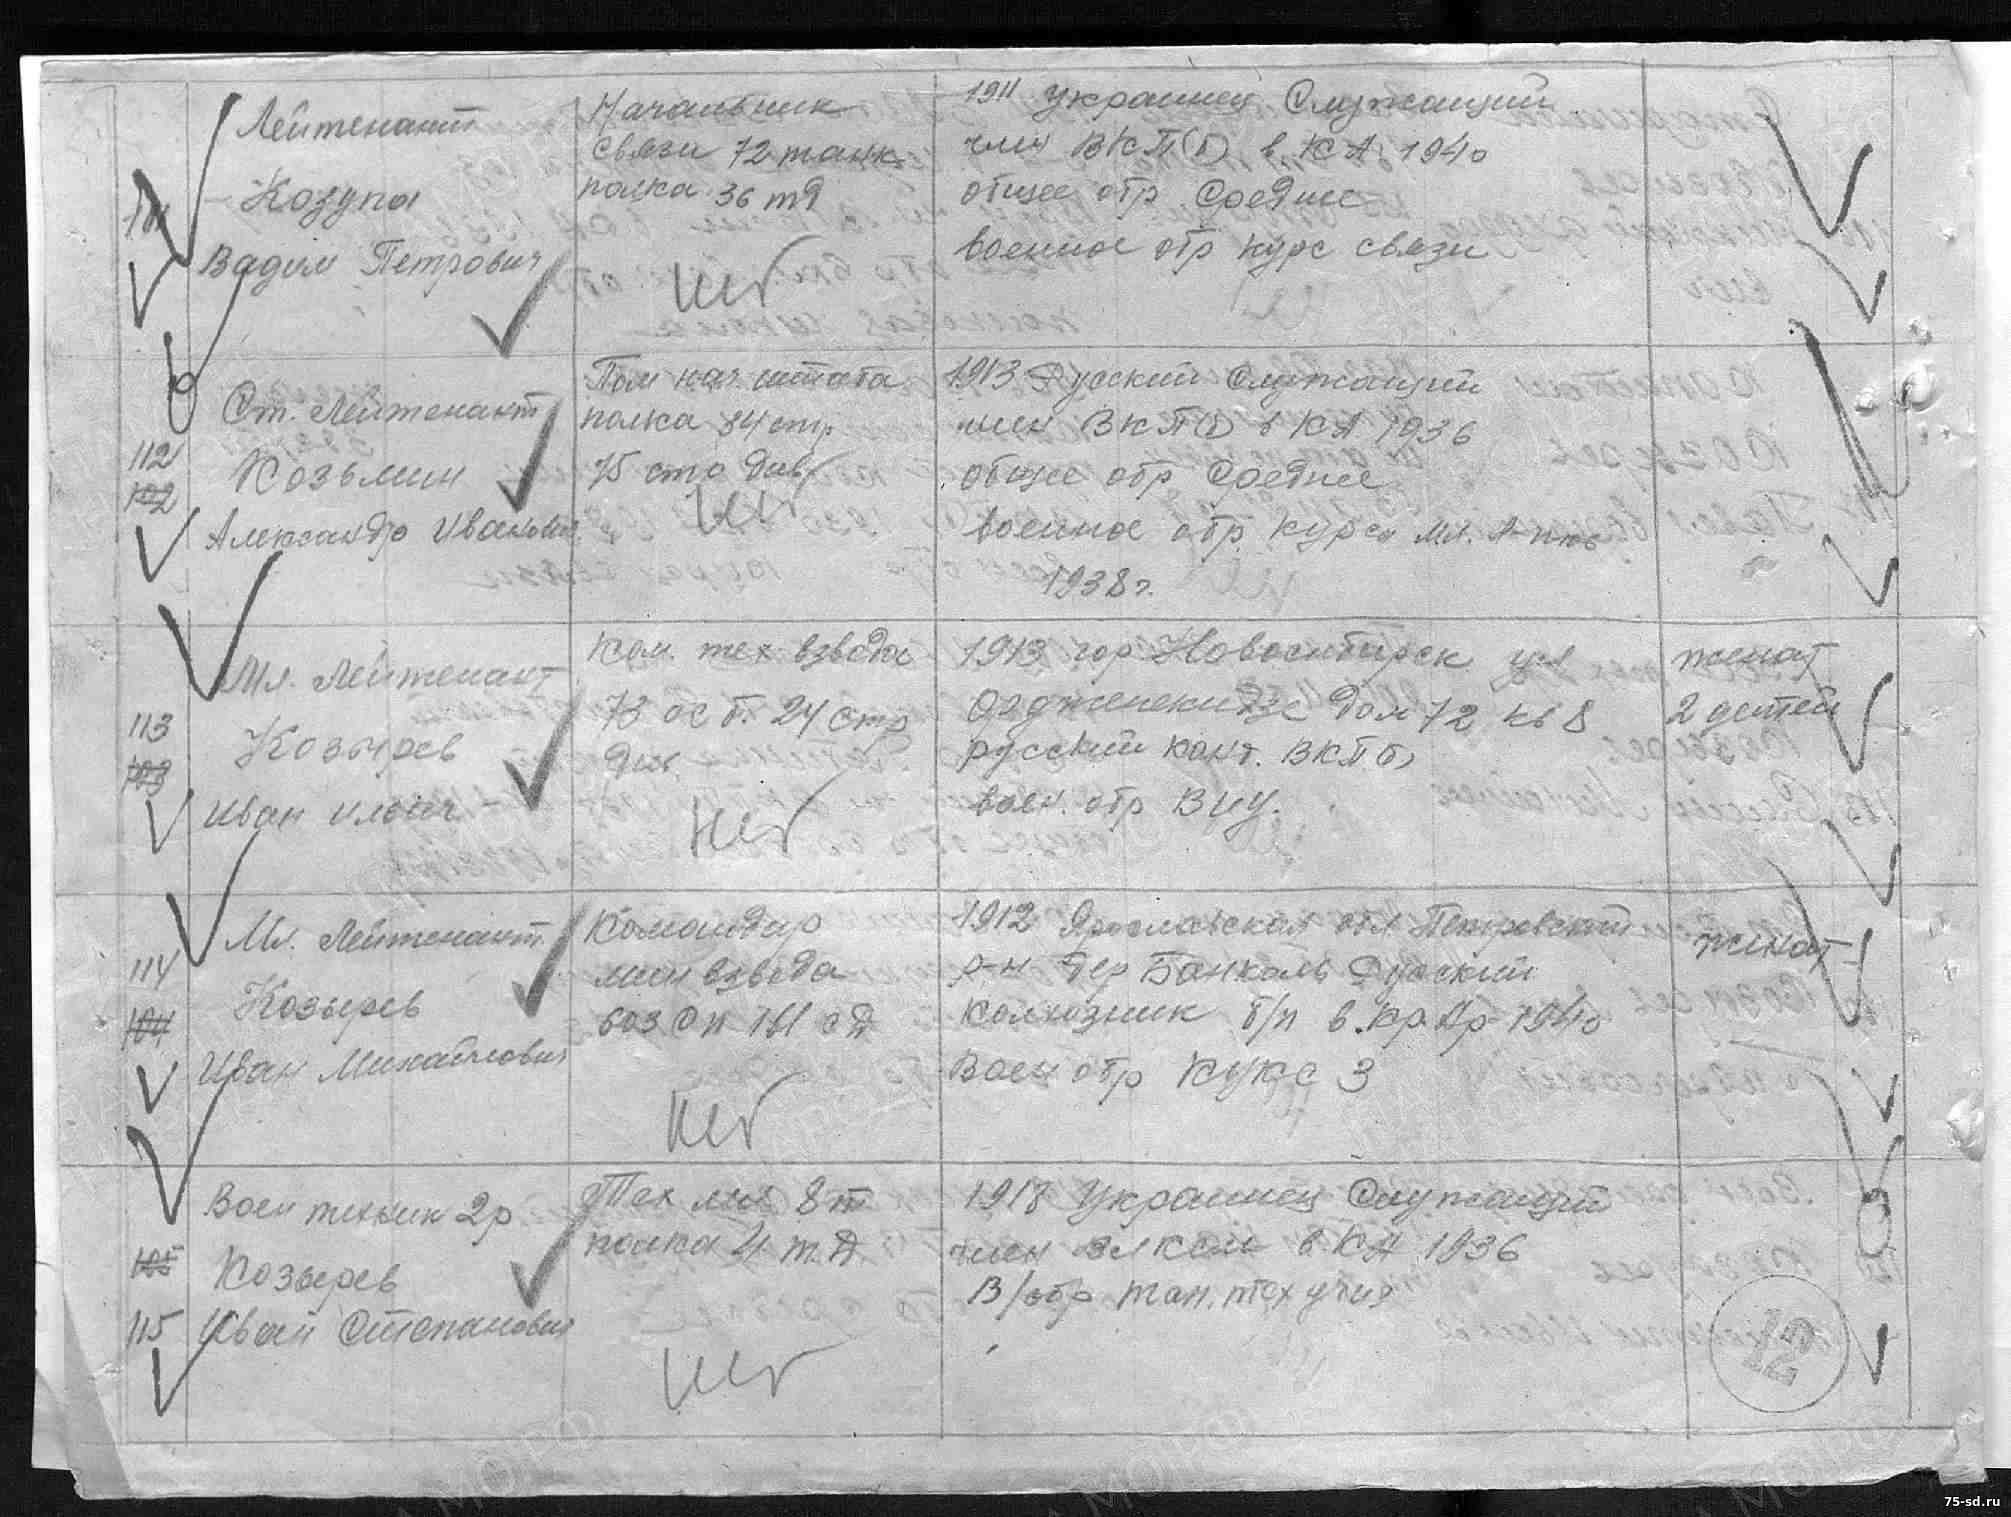 Лейтенант
Козупа
Вадим Петрович
Начальник
связи 72 танк.
полка 36 тд
Нет
1911 украинец Служащий
член ВКП(б) в КА 1940
общее обр Среднее
военное обр курс связи
112
102
Ст. Лейтенант
Козьмин
Александр Иванович
Пом нач штаба
полка 34 стр
75 стр див
Нет
1913 Русский Служащий
член ВКП(б) в КА 1936
общее обр Среднее
военное обр. курсы мл. л-тов
1938 г.
113
103
Мл. Лейтенант
Козырев
Иван Ильич
Ком. тех взвода
73 ос б. 24 стр
див.
Нет
1913 гор Новосибирск ул
Орджоникидзе дом 72 кв 8
русский канд. ВКП б)
воен. обр ВИУ.
женат
2 детей
114
104
Мл. Лейтенант
Козырев
Иван Михайлович
Командир
мин взвода
603 сп 161 сд
Нет
1912 Ярославская обл Петровский
р-н дер Русский
колхозник б/п в Кр Ар 1940
Воен обр КУКС 3
женат
105
115
Воентехник 2р
Козырев
Иван Степанович
Тех 8 т
полка 4 т.д.
Нет
1918 Украинец Служащий
член ВЛКСМ в КА 1936
В/обр тан. тех учил
12
75-sd.ru